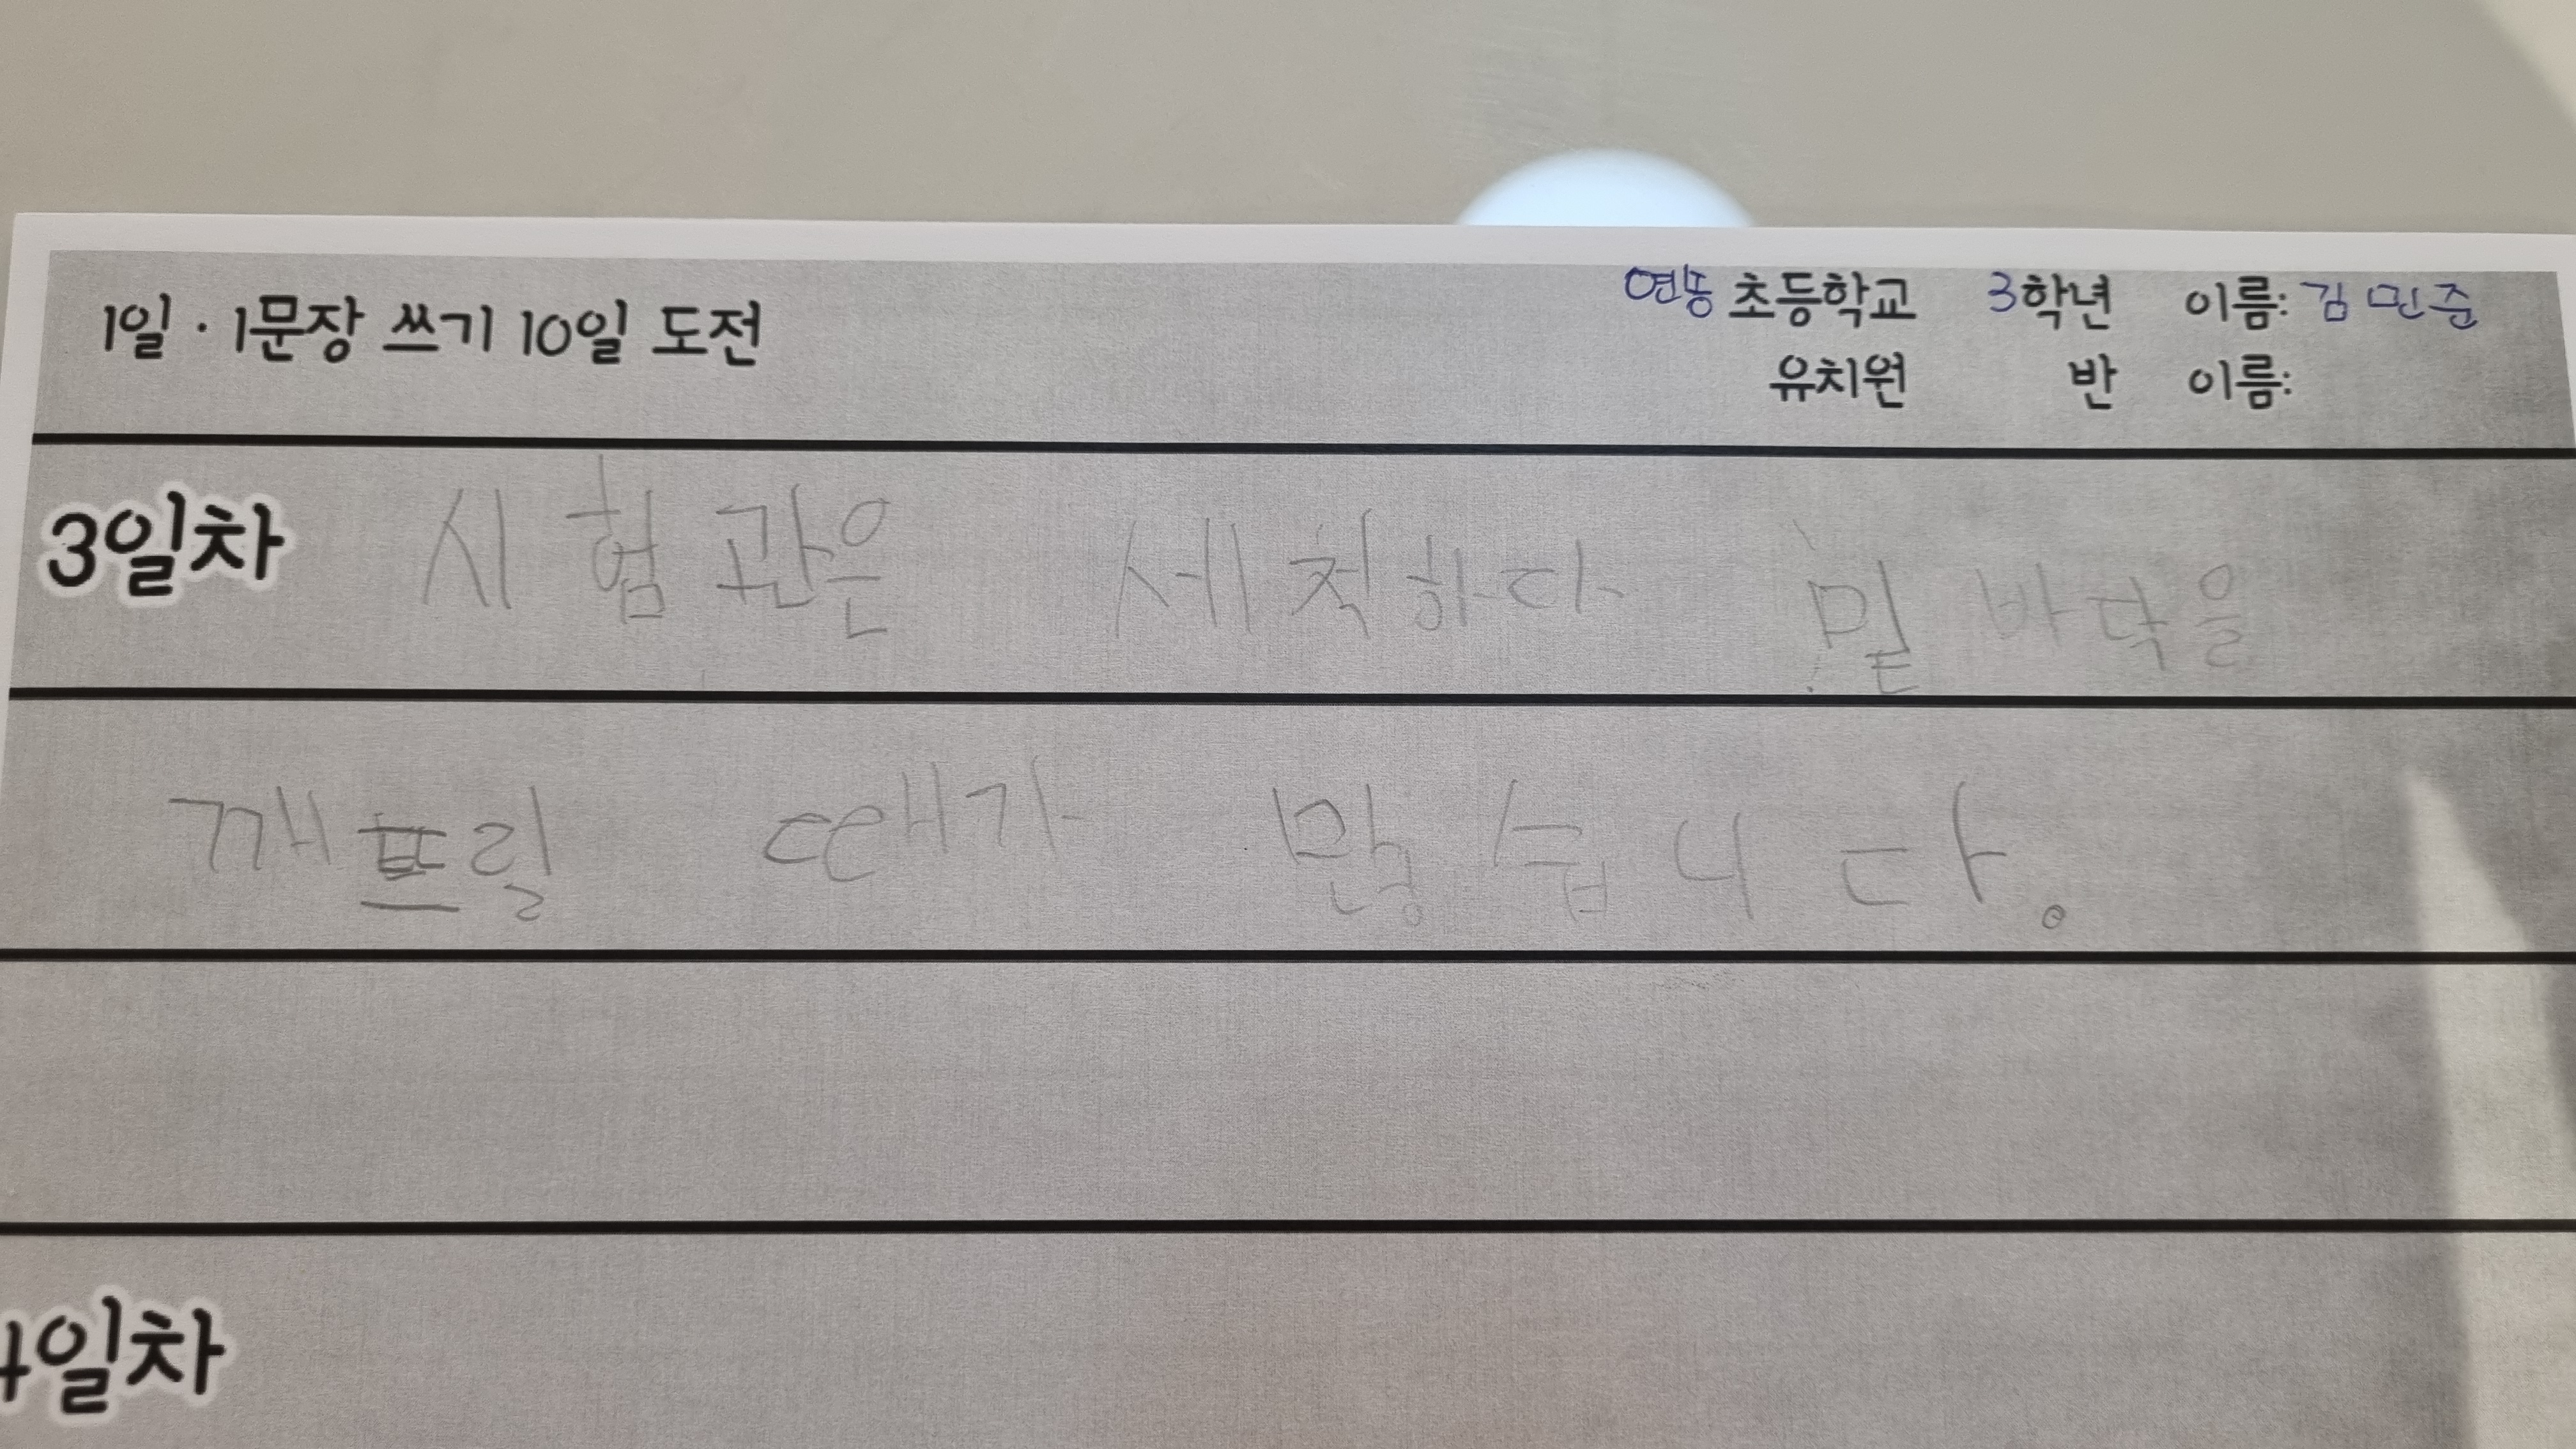 1일·1문장 쓰기 10일 도전
연동 초등학교 3학년 이름: 김민준
유치원 반 이름:
3일차 시험관은 세척하다 밑바닥을
깨뜨릴 때가 많습니다.
4일차